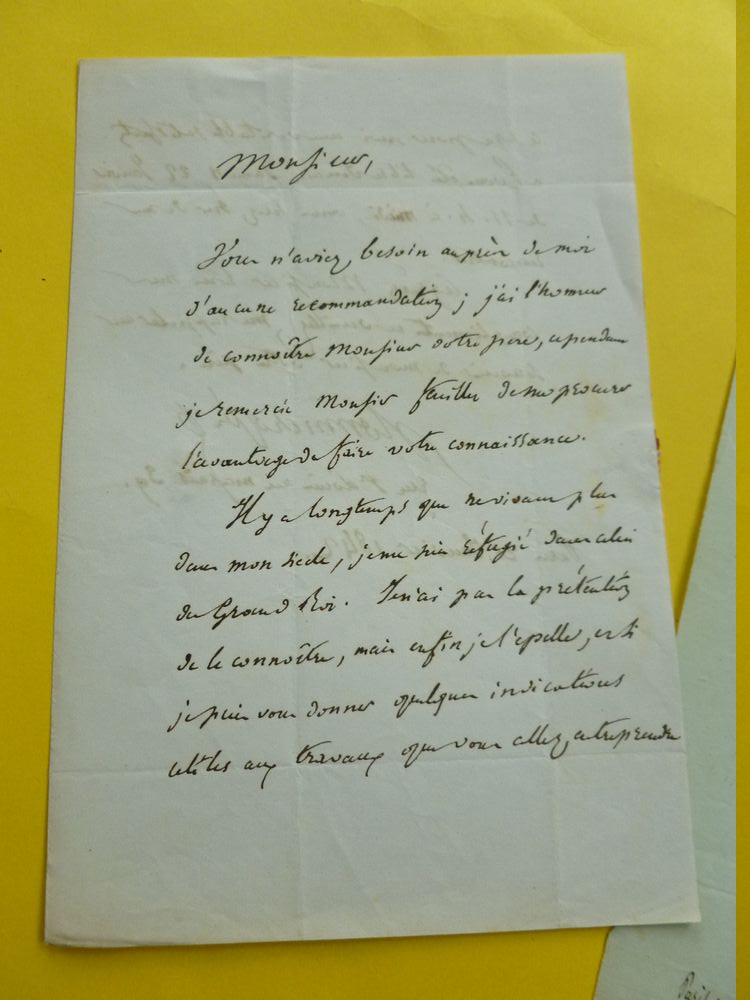 Monsieur,
Vous n'aviez besoin auprès de moi
d'aucune recommandation ; j'ai l'honneur
de connoître Monsieur votre père, cependant
je remercie Monsieur feuillet de me procurer
l'avantage de faire votre connaissance.
Il y a longtemps que ne vivant plus
dans mon siècle, je me suis réfugié dans celui
du Grand Roi. Je n'ai pas la prétention
de le connoître, mais enfin je l'epelle, et si
je puis vous donner quelques indications
utiles aux travaux que vous allez entreprendre